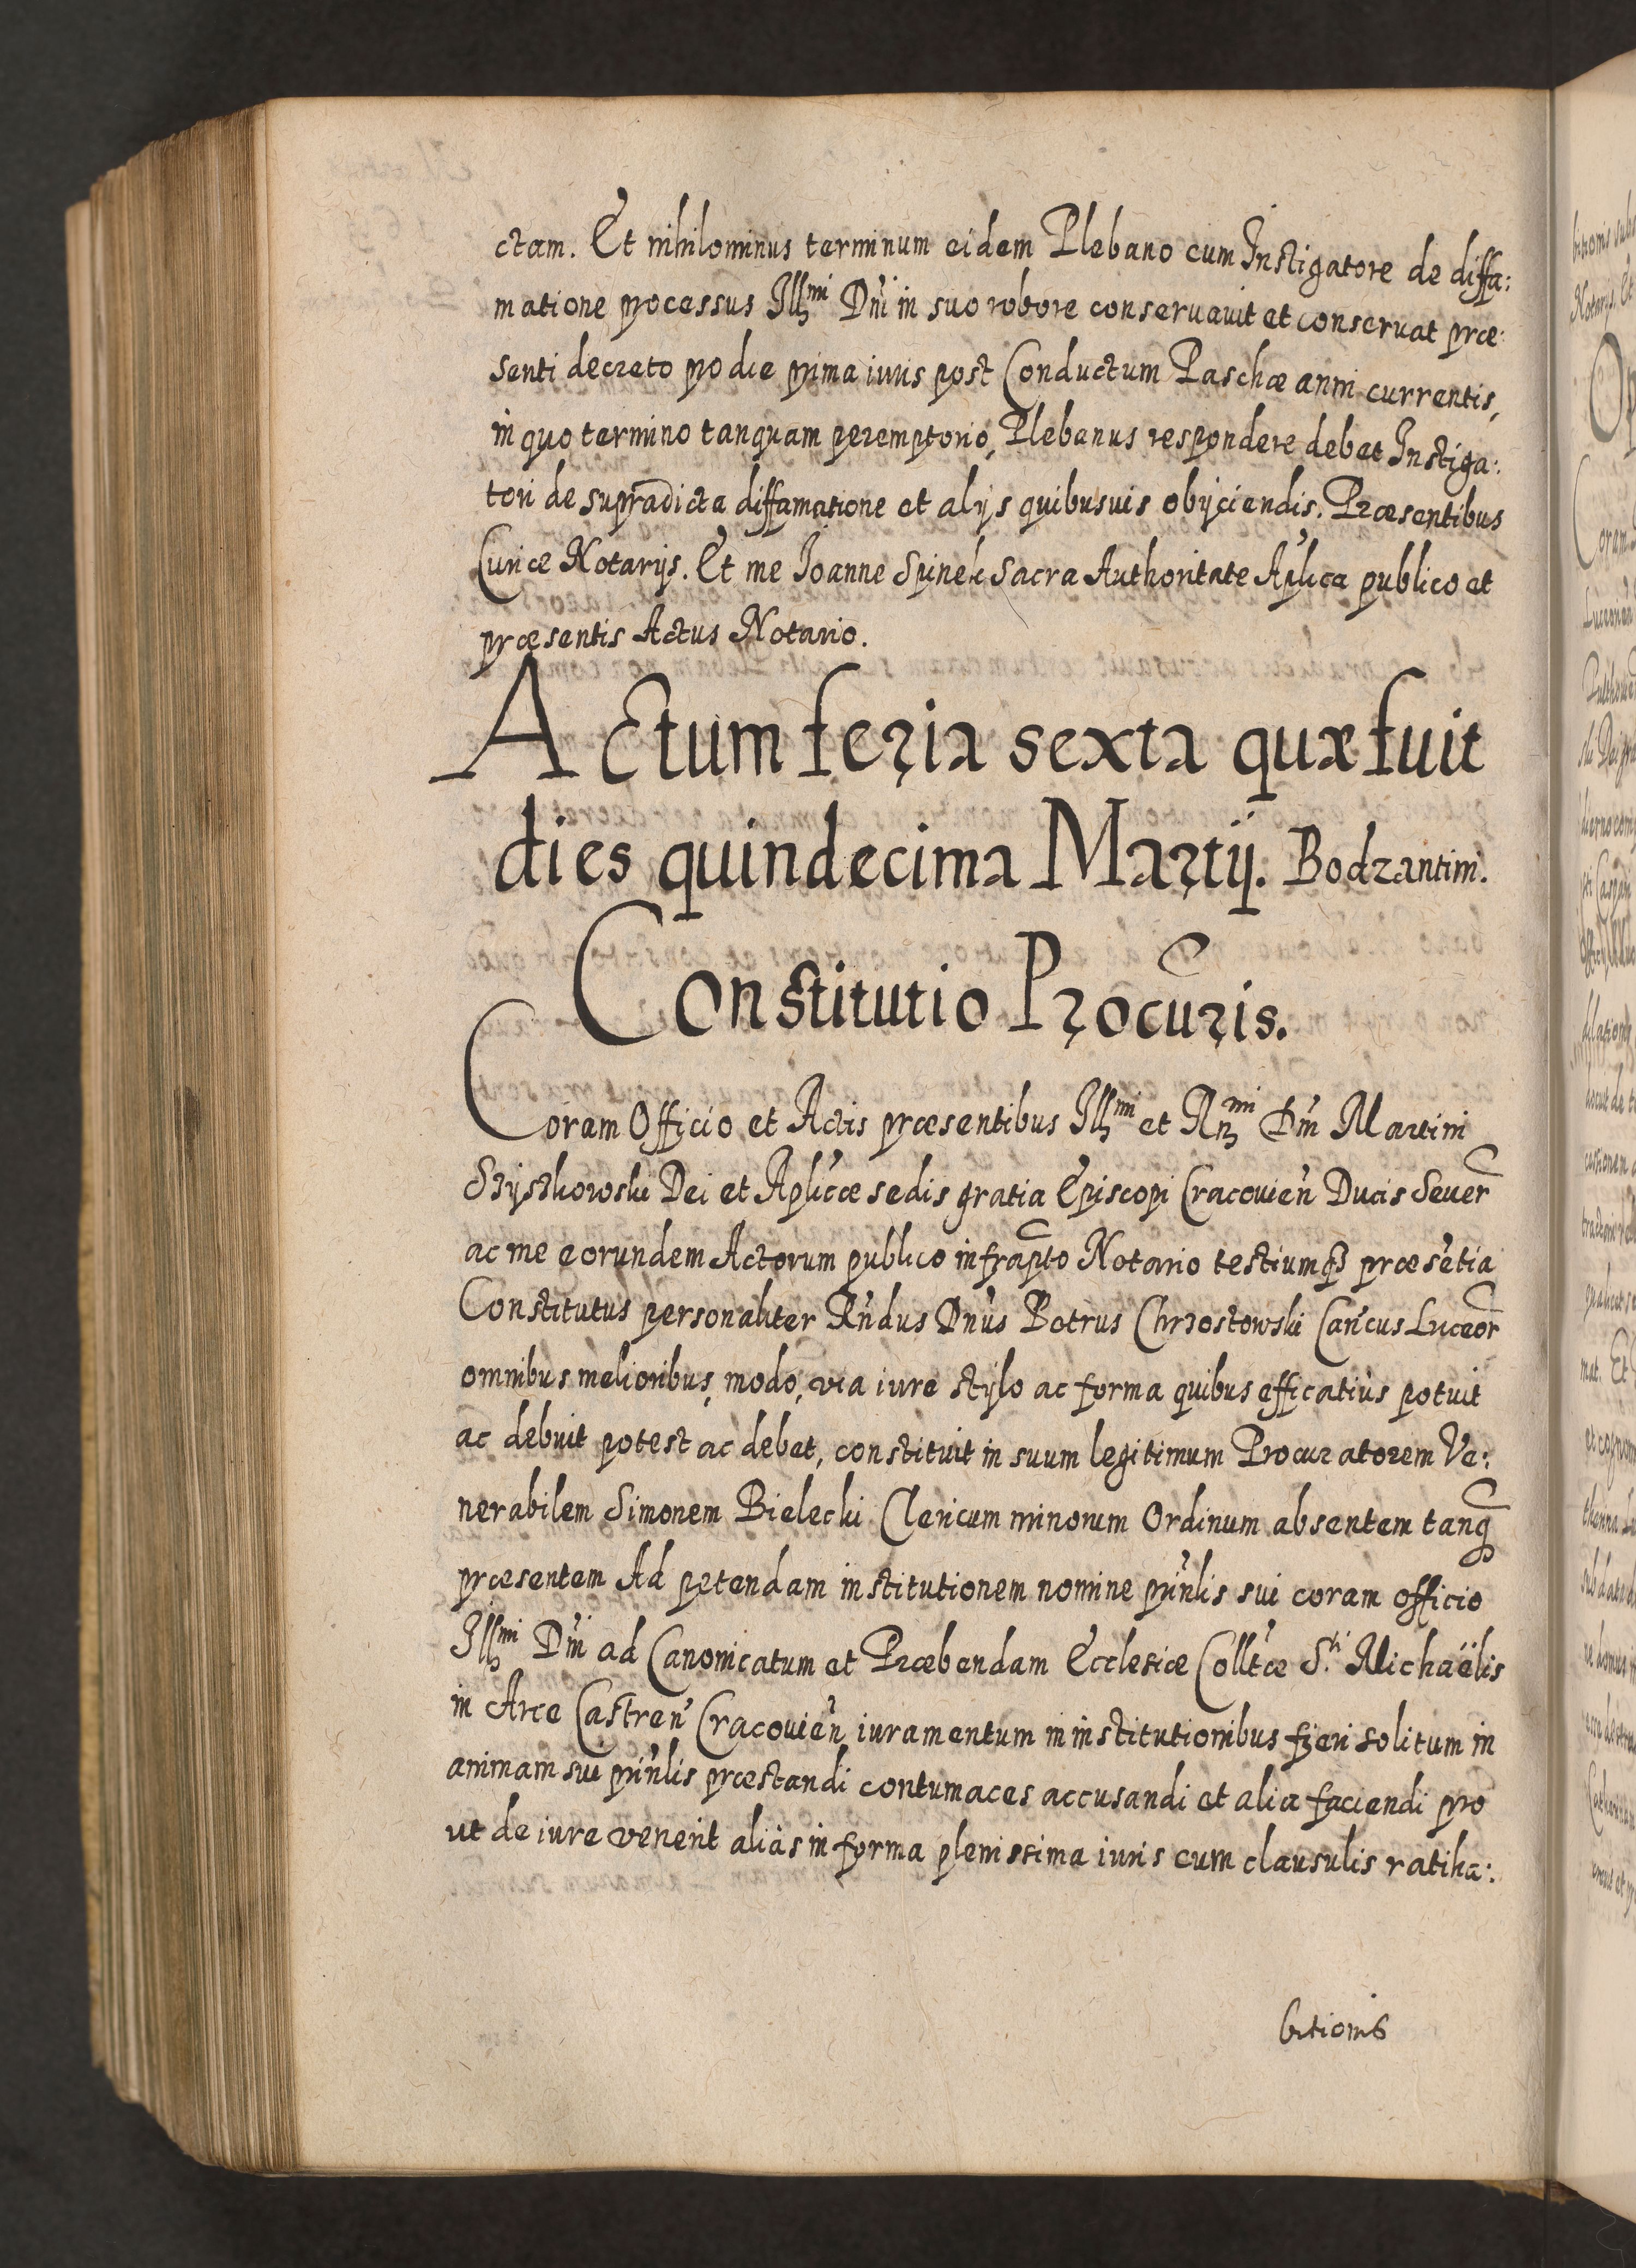 ctam. Et nihilominus terminum eidem Plebano cum Instigatore de diffa:
matione processus Illmi Dni in suo robore conseruauit et conseruat præ:
senti decreto pro die prima iuris post Conductum Paschæ anni currentis,
in quo termino tanquam peremptorio, Plebanus respondere debet Instiga:
tori de supradicta diffamatione et alijs quibusuis obijciendis. Præsentibus
Curiæ Notarijs. Et me Joanne Spinek Sacra Authoritate Aplica publico et
præsentis Actus Notario.
Actum feria sexta quæ fuit
dies quindecima Martij. Bodzantini.
Constitutio Procuris.
Coram Officio et Actis præsentibus Illmi et Rmi Dni Martini
Szyszkowski Dei et Aplicæ sedis gratia Episcopi Cracouien Ducis Seuer
ac me eorundem Actorum publico infrapto Notario testiumqꝫ præsetia
Constitutus personaliter Rndus Dnus Petrus Chrzostowski Cancus Luceor
omnibus melioribus, modo, via iure stylo ac forma quibus efficatius potuit
ac debuit potest ac debet, constituit in suum legitimum Procuratorem Ve:
nerabilem Simonem Bielecki Clericum minorum Ordinum absentem tanq
præsentem Ad petendam institutionem nomine prinlis sui coram officio
Illmi Dni ad Canonicatum et Præbendam Ecclesiæ Colltæ S.ti Michaëlis
in Arce Castren Cracouien iuramentum in institutionibus fieri solitum in
animam sui prinlis præstandi contumaces accusandi et alia faciendi pro
ut de iure venerit aliàs in forma plenissima iuris cum clausulis ratiha:
bitionis